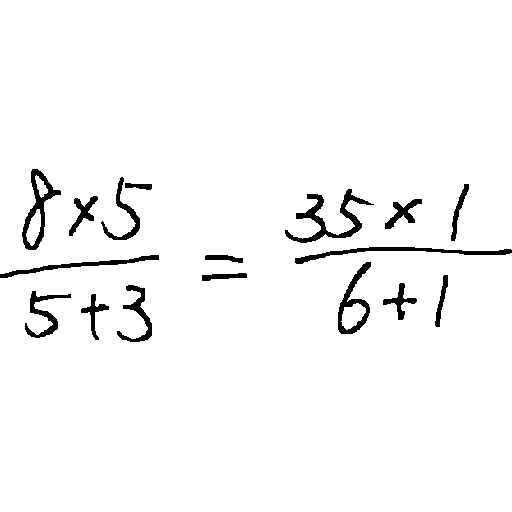 \frac{8 \times 5}{5+3} = \frac{35 \times 1}{6+1}